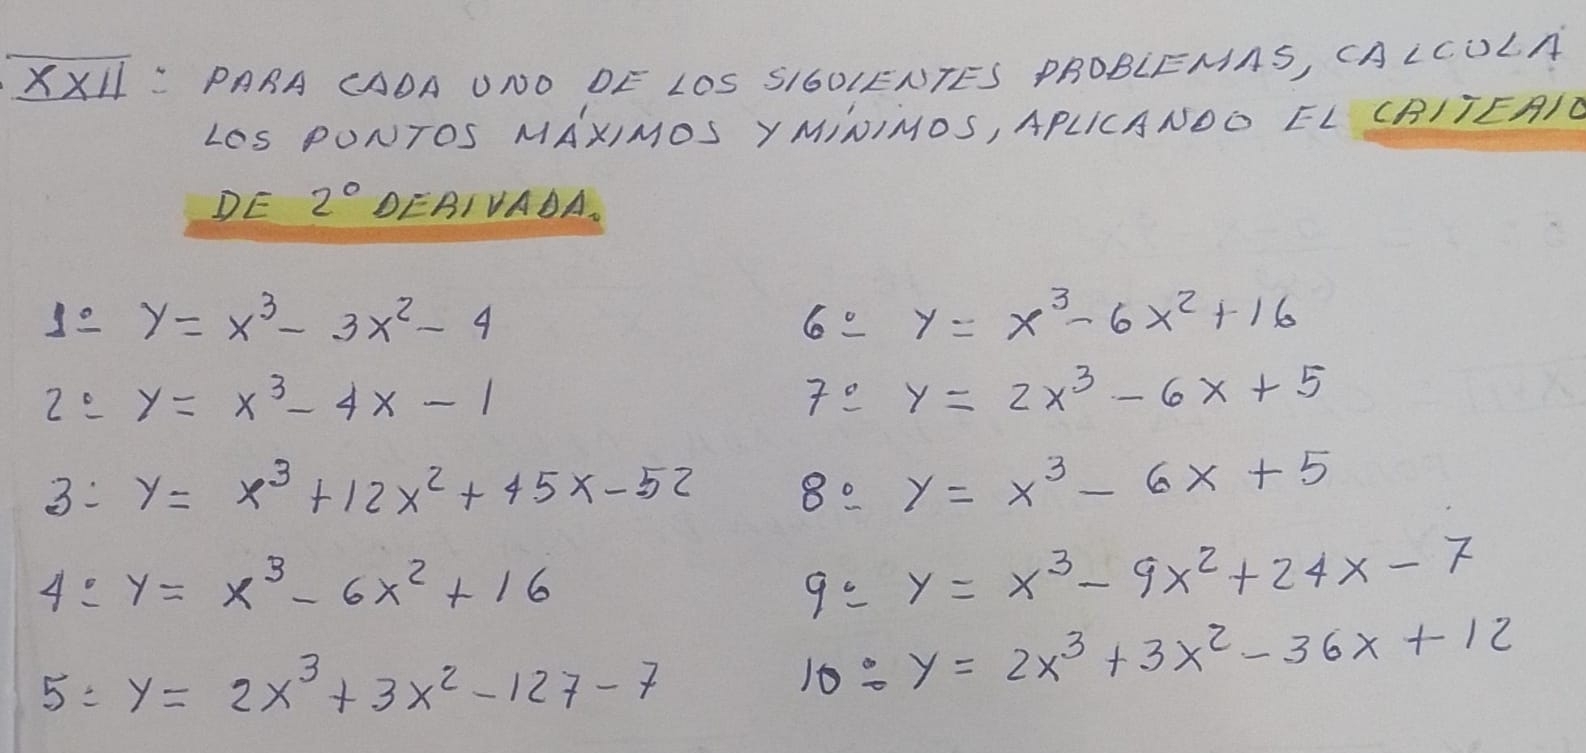 XXII: PARA CADA UNO DE LOS SIGUIENTES PROBLEMAS, CALCULA
LOS PUNTOS MÁXIMOS Y MÍNIMOS, APLICANDO EL CRITERIO
DE 2º DERIVADA.
1º y = x³ - 3x² - 4
2º y = x³ - 4x - 1
3: y = x³ + 12x² + 45x - 52
4: y = x³ - 6x² + 16
5: y = 2x³ + 3x² - 127 - 7
6º y = x³ - 6x² + 16
7º y = 2x³ - 6x + 5
8º y = x³ - 6x + 5
9º y = x³ - 9x² + 24x - 7
10º y = 2x³ + 3x² - 36x + 12